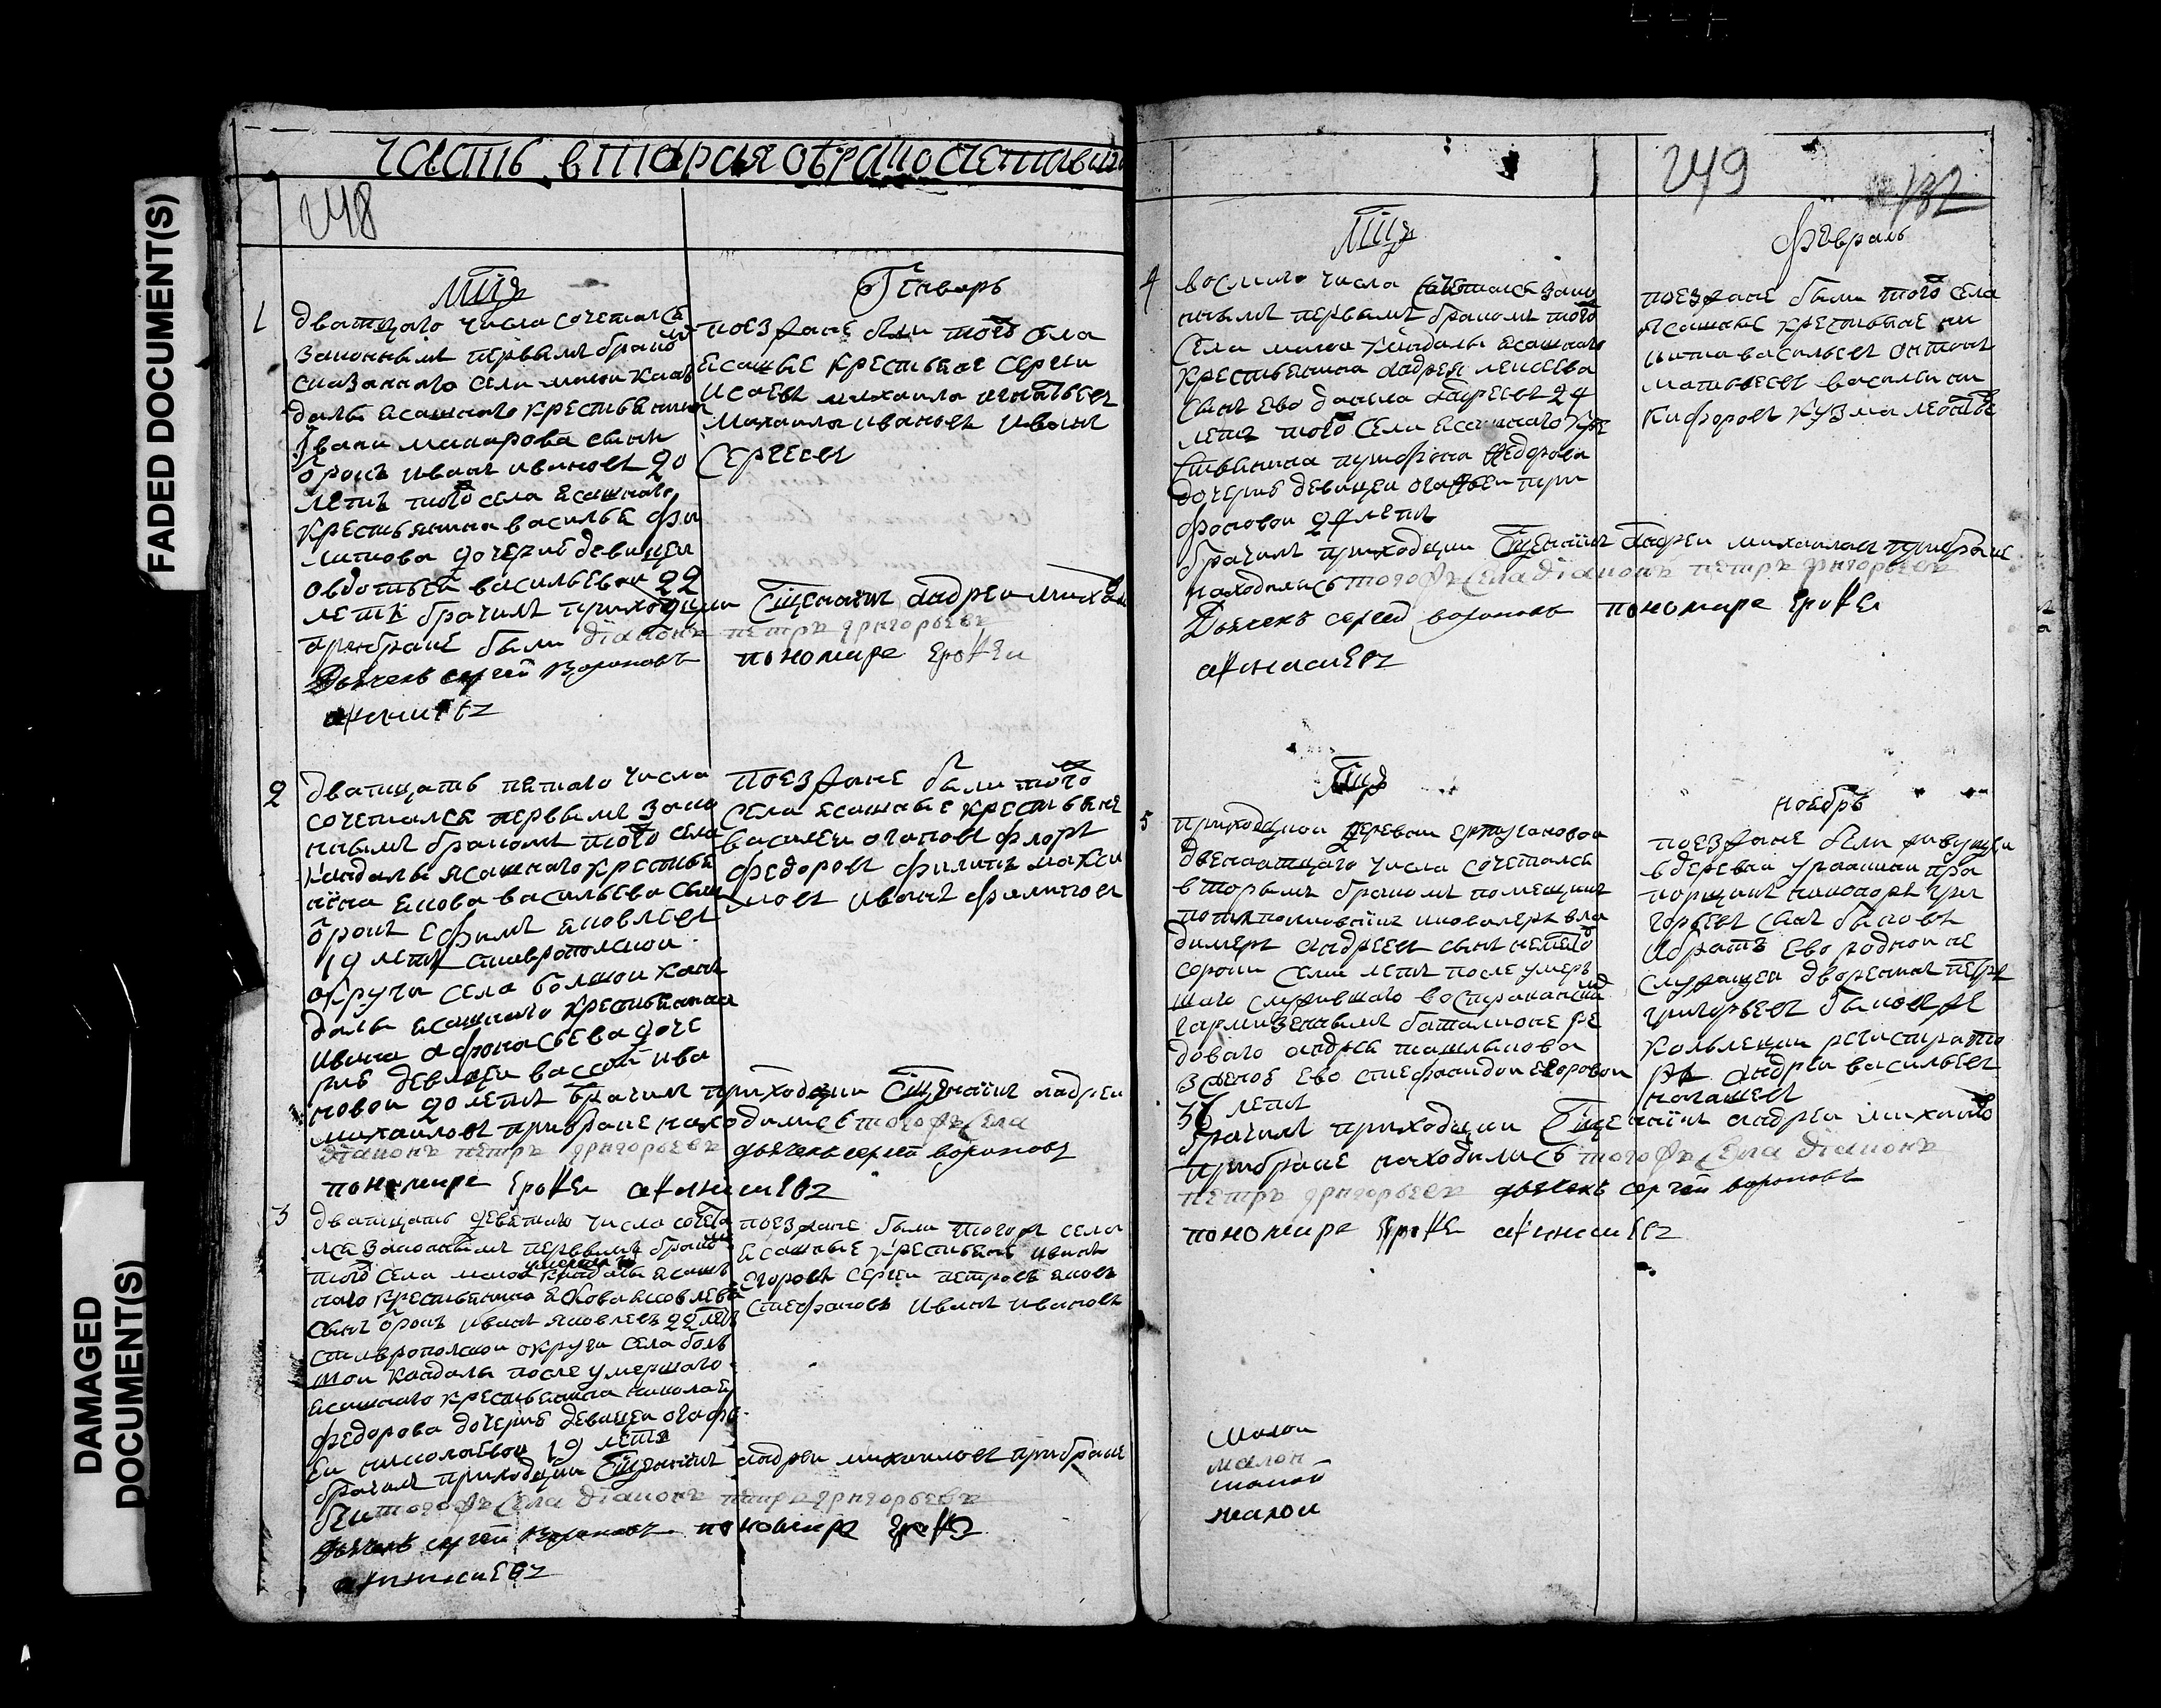 FADED DOCUMENT(S)
DAMAGED DOCUMENT(S)
часть вторая о бракосочетавши
248
Мца
Генварь
1
дватцатого числа сочетался
законным первым браком
сказанного села малой кан
далы ясашного крестьянина
Ивана макарова сын
отрок иван иванов 20
летъ того села ясашного
крестьянина василья фи
липова дочерью девицею
овдотьей васильевои 22
летъ брачил приходцки Сщенник андреи михаи
при браке были діаконъ петръ григорьевъ
Дьячекъ сергей Вороновъ пономаре Ерофеи
афанасиевъ
поезжане были того села
ясашные крестьяне сергеи
исаевъ михаила игнатьевъ
михаила иванов иван
Сергеев
2
дватцать пятого числа
сочетался первым зако
нным браком того села
кандалы ясашного крестья
нина якова васильева сын
отрок ефим яковлев
19 летъ ставропольской
округи села большой кан
далы ясашного крестьянина
ивана афонасьева доче
рью девицеи вассой ива
новои 20 летъ брачил приходцки Сщенник андреи
михаилов при браке находились того жъ села
діаконъ петръ григорьевъ дьячекъ сергей вороновъ
пономаре Ерофеи афанасиевъ
поезжане были того
села ясашные крестьяне
василеи федоров филипъ макси
мов иван филипов
3
дватцать девятого числа сочета
лся законным первым браком
того села малой кандалы ясаш
ного крестьянина якова яковлева
сын отрокъ иван яковлевъ 22 летъ
ставропольской округи села боль
шой кандалы после умершаго
ясашного крестьянина николая
федорова дочерью девицеи огафь
ей николаевои 19 летъ
брачил приходцки Сщенник андреи михаилов при браке
были того жъ села діаконъ петръ григорьевъ
дьячекъ сергей вороновъ пономаре Ерофеи
афанасиевъ
поезжане были того ж села
ясашные крестьяне иван
Егоровъ сергеи петровъ яков
стефановъ иван иванов
249
132
Мца
Февраль
4
восмого числа сочетался зако
нным первым браком того
села малой кандалы ясашного
крестьянина андрея
сын ево данила андреев 24
летъ того села ясашного кре
стьянина федорова
дочерью девицеи огафьеи три
фоновои 24 летъ
брачил приходцки Сщенник андреи михаилов при браке
находились того жъ села діаконъ петръ григорьевъ
Дьячекъ сергей вороновъ пономаре Ерофеи
афанасиевъ
поезжане были того села
ясашные крестьяне ни
кита васильев онтон
матвеев василеи ни
кифоров кузма
Мца
ноябрь
5
приходцкои деревни
двенатцатого числа сочетался
вторым браком помещик
вла
димер андреев сын
сорока семи летъ после умер
шаго служившаго в
гарнизонным баталионе ре
доваго андрея
женою ево стефанидои егоровои
36 летъ
брачил приходцки Сщенник андреи михаило
при браке находились того жъ села діаконъ
петръ григорьевъ дьячекъ сергей вороновъ
пономаре Ерофеи афанасиевъ
поезжане были живущеи
в деревни пра
порщик никонор гри
горьев сын быков
и братъ ево роднои не
служащеи дворенин петръ
григорьев быков же
колыжски регистрато
ръ андреи васильев
малои
малои
малой
малои